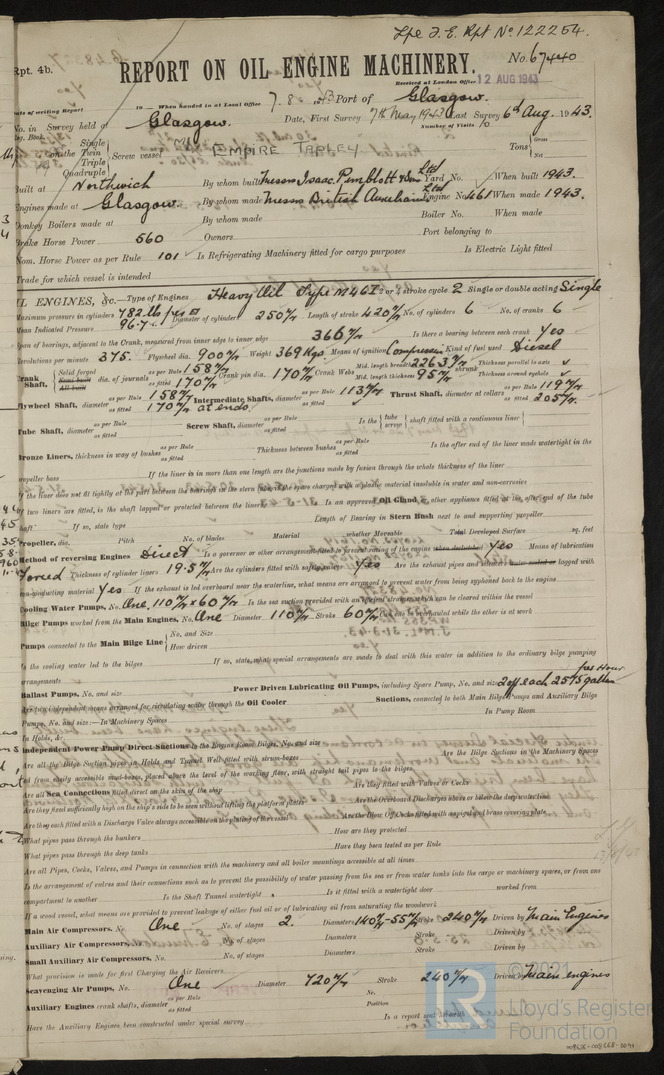 Lpe. F. E. Rpt No. 122254.
Rpt. 4b. REPORT ON OIL ENGINE MACHINERY. No. 67440
Received at London Office 12 AUG 1943
Date of writing Report 19 When handed in at Local Office 7. 8. 1943 Port of Glasgow.
No. in Survey held at Glasgow. Date, First Survey 7th May 1943 Last Survey 6th Aug. 1943.
Reg. Book. Number of Visits 10
on the Single Twin Triple Quadruple Screw vessel M/V EMPIRE TAPLEY Tons Gross Net
Built at Northwich By whom built Messrs Isaac Pimblott & Sons Ltd Yard No. When built 1943.
Engines made at Glasgow. By whom made Messrs British Auxiliaries Ltd Engine No. 461 When made 1943.
Donkey Boilers made at By whom made Boiler No. When made
Brake Horse Power 560 Owners Port belonging to
Nom. Horse Power as per Rule 101 Is Refrigerating Machinery fitted for cargo purposes Is Electric Light fitted
Trade for which vessel is intended
OIL ENGINES, &c.—Type of Engines Heavy Oil Type M46I 2 or 4 stroke cycle 2 Single or double acting Single
Maximum pressure in cylinders 782 lbs per □" Diameter of cylinders 250 m/m Length of stroke 420 m/m No. of cylinders 6 No. of cranks 6
Mean Indicated Pressure 96.7
Span of bearings, adjacent to the Crank, measured from inner edge to inner edge 366 m/m Is there a bearing between each crank Yes
Revolutions per minute 375. Flywheel dia. 900 m/m Weight 369 Kgs. Means of ignition Compression Kind of fuel used Diesel
Crank Shaft, Solid forged Semi built All built dia. of journals as per Rule 158 m/m as fitted 170 m/m Crank pin dia. 170 m/m Crank Webs Mid. length breadth 226.3 m/m Mid. length thickness 95 m/m shrunk Thickness parallel to axis ✓ Thickness around eyehole ✓
Flywheel Shaft, diameter as per Rule 158 m/m as fitted 170 m/m at ends. Intermediate Shafts, diameter as per Rule 113 m/m as fitted ✓ Thrust Shaft, diameter at collars as per Rule 119 m/m as fitted 205 m/m
Tube Shaft, diameter as per Rule as fitted Screw Shaft, diameter as per Rule as fitted Is the tube screw shaft fitted with a continuous liner
Bronze Liners, thickness in way of bushes as per Rule as fitted Thickness between bushes as per Rule as fitted Is the after end of the liner made watertight in the
propeller boss If the liner is in more than one length are the junctions made by fusion through the whole thickness of the liner
If the liner does not fit tightly at the part between the bearings in the stern tube, is the space charged with a plastic material insoluble in water and non-corrosive
If two liners are fitted, is the shaft lapped or protected between the liners Is an approved Oil Gland or other appliance fitted at the after end of the tube
shaft If so, state type Length of Bearing in Stern Bush next to and supporting propeller
Propeller, dia. Pitch No. of blades Material whether Moveable Total Developed Surface sq. feet
Method of reversing Engines Direct Is a governor or other arrangement fitted to prevent racing of the engine when declutched Yes Means of lubrication
Forced Thickness of cylinder liners 19.5 m/m Are the cylinders fitted with safety valves Yes Are the exhaust pipes and silencers water cooled or lagged with
non-conducting material Yes If the exhaust is led overboard near the waterline, what means are arranged to prevent water from being syphoned back to the engine
Cooling Water Pumps, No. One, 110 m/m x 60 m/m Is the sea suction provided with an efficient strainer which can be cleared within the vessel
Bilge Pumps worked from the Main Engines, No. One Diameter 110 m/m Stroke 60 m/m Can one be overhauled while the other is at work
Pumps connected to the Main Bilge Line No. and Size How driven
Is the cooling water led to the bilges If so, state what special arrangements are made to deal with this water in addition to the ordinary bilge pumping
arrangements
Ballast Pumps, No. and size Power Driven Lubricating Oil Pumps, including Spare Pump, No. and size 2 off each 2575 gallon per Hour
Are two independent means arranged for circulating water through the Oil Cooler Suctions, connected to both Main Bilge Pumps and Auxiliary Bilge
Pumps, No. and size:—In Machinery Spaces In Pump Room
In Holds, &c.
Independent Power Pump Direct Suctions to the Engine Room Bilges, No. and size
Are all the Bilge Suction pipes in Holds and Tunnel Well fitted with strum-boxes Are the Bilge Suctions in the Machinery Spaces
led from easily accessible mud-boxes, placed above the level of the working floor, with straight tail pipes to the bilges
Are all Sea Connections fitted direct on the skin of the ship Are they fitted with Valves or Cocks
Are they fixed sufficiently high on the ship's side to be seen without lifting the platform plates Are the Overboard Discharges above or below the deep water line
Are they each fitted with a Discharge Valve always accessible on the plating of the vessel Are the Blow Off Cocks fitted with a spigot and brass covering plate
What pipes pass through the bunkers How are they protected
What pipes pass through the deep tanks Have they been tested as per Rule
Are all Pipes, Cocks, Valves, and Pumps in connection with the machinery and all boiler mountings accessible at all times
Is the arrangement of valves and their connections such as to prevent the possibility of water passing from the sea or from water tanks into the cargo or machinery spaces, or from one
compartment to another Is the Shaft Tunnel watertight Is it fitted with a watertight door worked from
If a wood vessel, what means are provided to prevent leakage of either fuel oil or of lubricating oil from saturating the woodwork
Main Air Compressors, No. One No. of stages 2. Diameters 140 m/m - 55 m/m Stroke 240 m/m Driven by Main Engines
Auxiliary Air Compressors, No. No. of stages Diameters Stroke Driven by
Small Auxiliary Air Compressors, No. No. of stages Diameters Stroke Driven by
What provision is made for first Charging the Air Receivers
Scavenging Air Pumps, No. One Diameter 720 m/m Stroke 240 m/m Driven by Main engines
Auxiliary Engines crank shafts, diameter as per Rule as fitted No. Position
Have the Auxiliary Engines been constructed under special survey Is a report sent herewith
© 2021
LR Lloyd's Register
Foundation